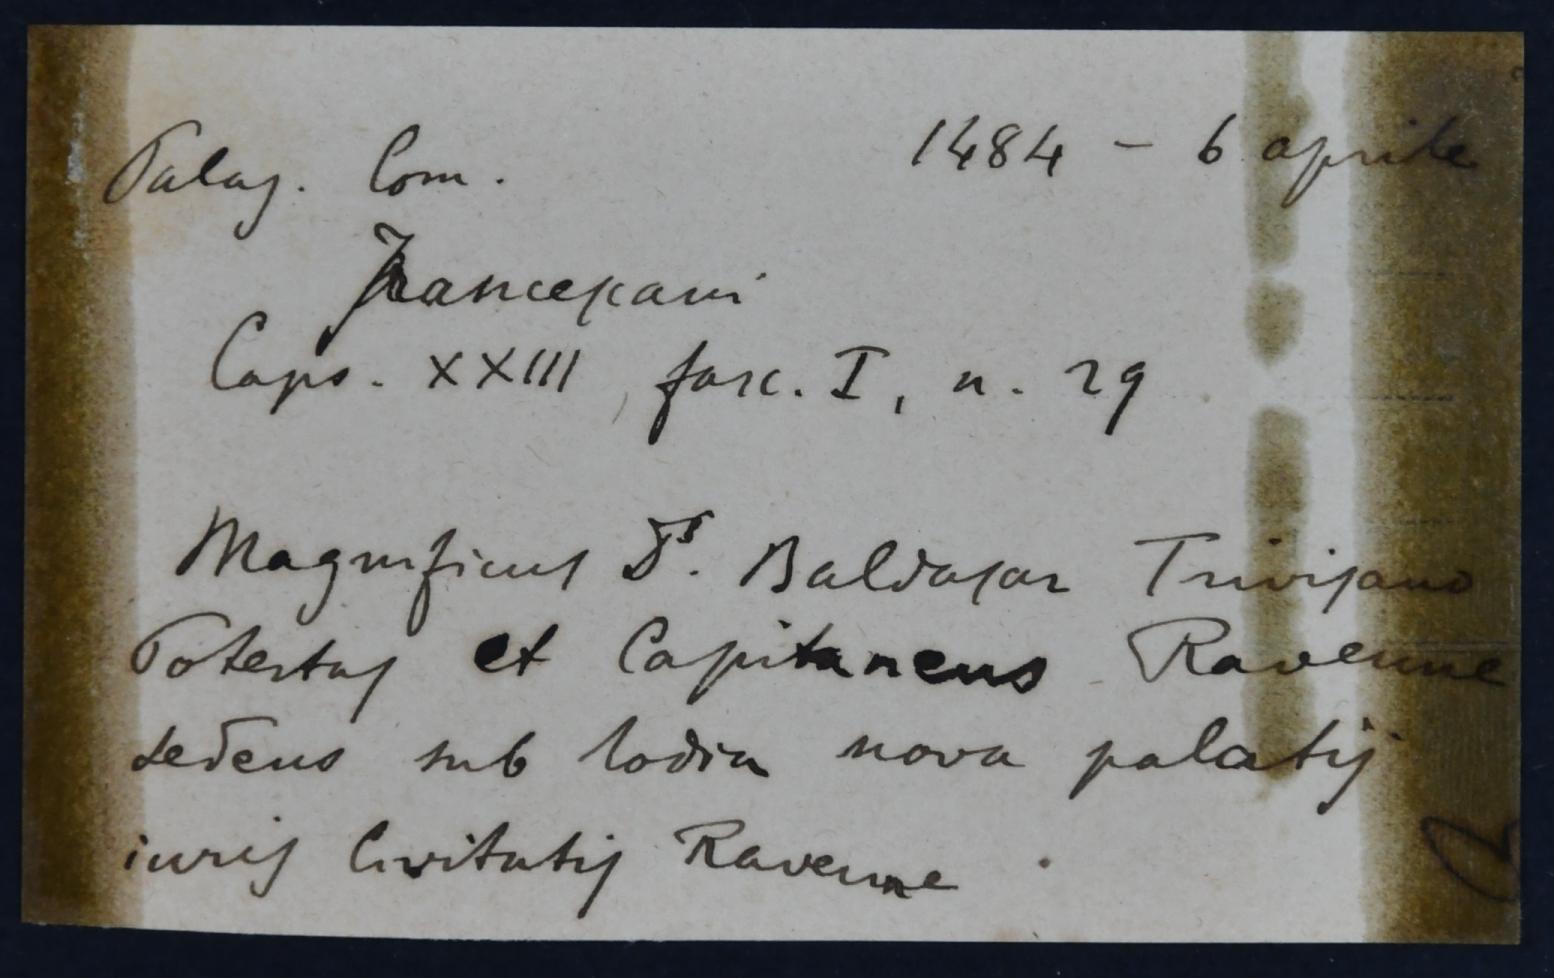 Palaz. Com. 1484 - 6 aprile
Francescani
Caps. XXIII, fasc. I, n. 29
Magnificus Ds. Baldasar Trivisano
Potestas et Capitaneus Ravenne
sedens sub lodia nova palatij
iuris Civitatis Ravenne.